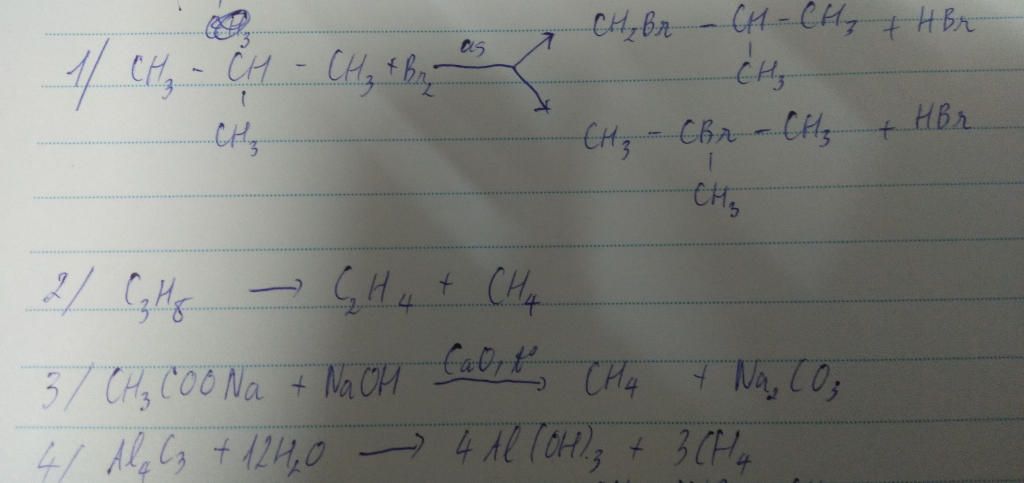 CH3
CH2Br - CH - CH3 + HBr
1/ CH3 - CH - CH3 + Br2 as
CH3
CH3
CH3 - CBr - CH3 + HBr
CH3
2/ C3H8 → C2H4 + CH4
3/ CH3COONa + NaOH CaO, t° → CH4 + Na2CO3
4/ Al4C3 + 12H2O → 4Al(OH)3 + 3CH4